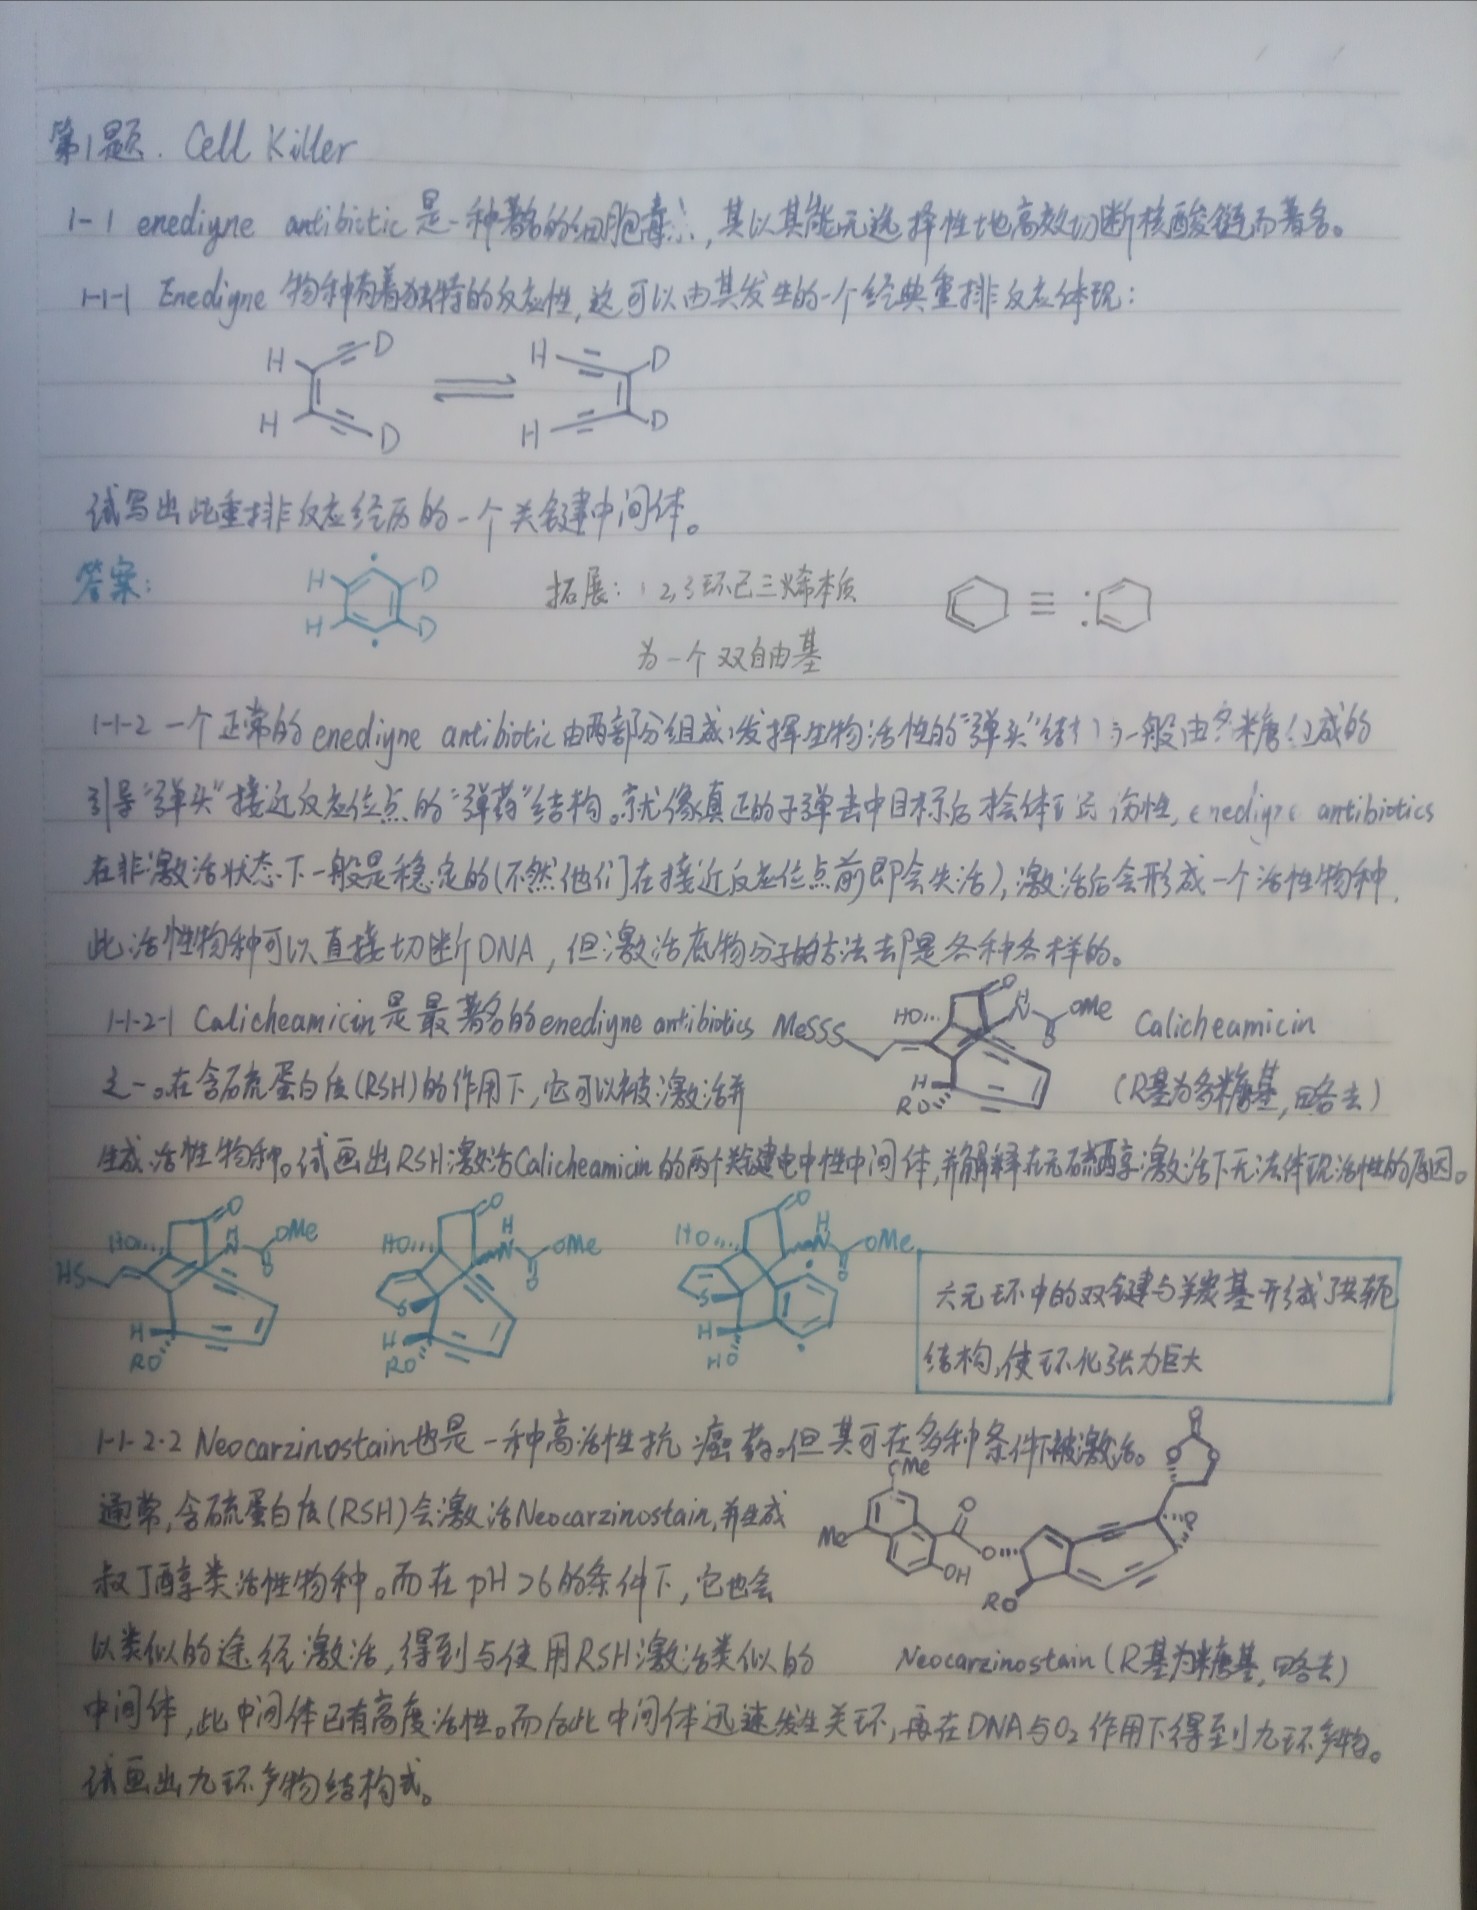 第1题. Cell Killer
1-1 enediyne antibiotic是一种著名的细胞毒, 其以其能无选择性地高效切断核酸链而著名。
1-1-1 Enediyne物种有着独特的反应性,这可以由其发生的一个经典重排反应体现:
H D H D
H D H D
试写出此重排反应经历的一个关键中间体。
答案:
H D
H D
拓展: 1,2,3环己三烯本质
为一个双自由基
1-1-2 一个正常的enediyne antibiotic由两部分组成:发挥生物活性的“弹头”结构与一般由多糖组成的
引导“弹头”接近反应位点的“弹药”结构。就像真正的子弹击中目标后才会体现伤性, enediyne antibiotics
在非激活状态下一般是稳定的(不然他们在接近反应位点前即会失活),激活后会形成一个活性物种,
此活性物种可以直接切断DNA,但激活底物分子的方法却是各种各样的。
1-1-2-1 Calicheamicin是最著名的enediyne antibiotics
之一。在含硫蛋白质(RSH)的作用下,它可以被激活并
MeSSS HO O H N OMe O H RO
Calicheamicin
(R基为多糖基,略去)
生成活性物种。试画出RSH激活Calicheamicin的两个关键电中性中间体,并解释在无硫醇激活下无法体现活性的原因。
HO O H N OMe O HS H RO
HO O H N OMe O S H RO
HO O H N OMe O S H HO
六元环中的双键与羰基形成了共轭
结构,使环化张力巨大
1-1-2-2 Neocarzinostain也是一种高活性抗癌药。但其可在多种条件下被激活。
通常,含硫蛋白质(RSH)会激活Neocarzinostain,并生成
叔丁醇类活性物种。而在pH>6的条件下,它也会
以类似的途径激活,得到与使用RSH激活类似的
OMe Me O O OH RO O O O O
Neocarzinostain(R基为糖基,略去)
中间体,此中间体已有高度活性。而后此中间体迅速发生关环,再在DNA与O₂作用下得到九环产物。
试画出九环产物结构式。